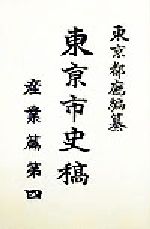 東京都廳編纂
東京市史稿
産業篇第四